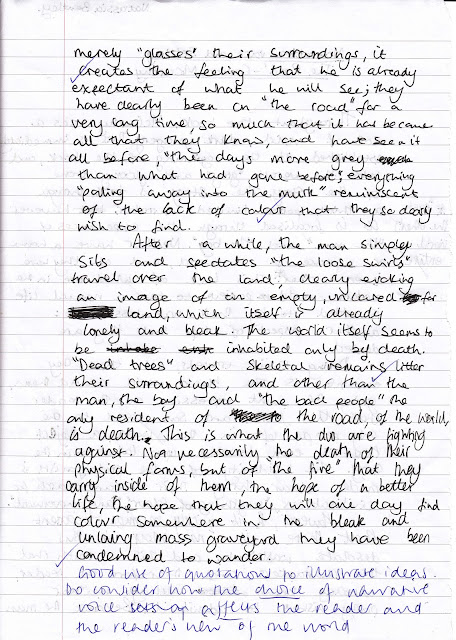 merely "glasses" their surroundings, it
creates the feeling that he is already
expectant of what he will see; they
have clearly been on "the road" for a
very long time, so much that it has became
all that they know, and have seen it
all before, "the days more grey
than what had gone before", everything
"paling away into the murk" reminiscent
of the lack of colour that they so dearly
wish to find.
After a while, the man simply
sits and spectates "the loose swirls"
travel over the land, clearly evoking
an image of an empty, uncared for
land, which itself is already
lonely and bleak. The world itself seems to
be inhabited only by death.
"Dead trees" and skeletal remains litter
their surroundings, and other than the
man, the boy and "the bad people" the
only resident of the road, of the world,
is death. This is what the duo are fighting
against. Not necessarily the death of their
physical forms, but of "the fire" that they
carry inside of them, the hope of a better
life, the hope that they will one day find
colour somewhere in the bleak and
mass graveyard they have been
condemned to wander.
Good use of quotation to illustrate ideas.
Do consider how the choice of narrative
voice affects the reader and
the reader's view of the world